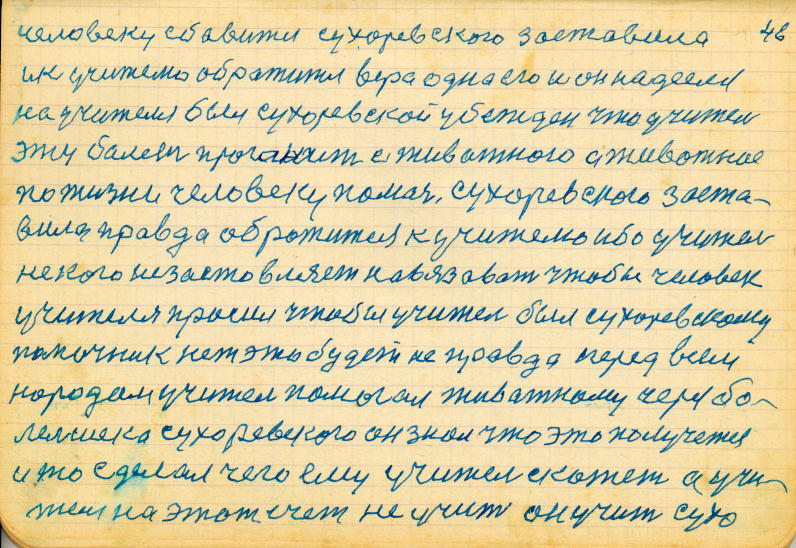 человеку сбавитя сухоревского заставила 48
ик учителю обратитя вера одна его и он надееля
на учителя был сухоревской убежден что учител
эту балезн прогонит с живатного а животное
по жизни человеку помач, сухоревского заста-
вила правда обротится к учителю ибо учител
некого незастовляет навязоват чтобы человек
учителя просил чтобы учител был сухоревскому
помочник нет это будет не правда перед всем
народам учител помогал живатному через бо-
леника сухоревского он знал что это получется
и то сделал чего ему учител скожет а учи-
тел на этот счет не учит он учит сухо